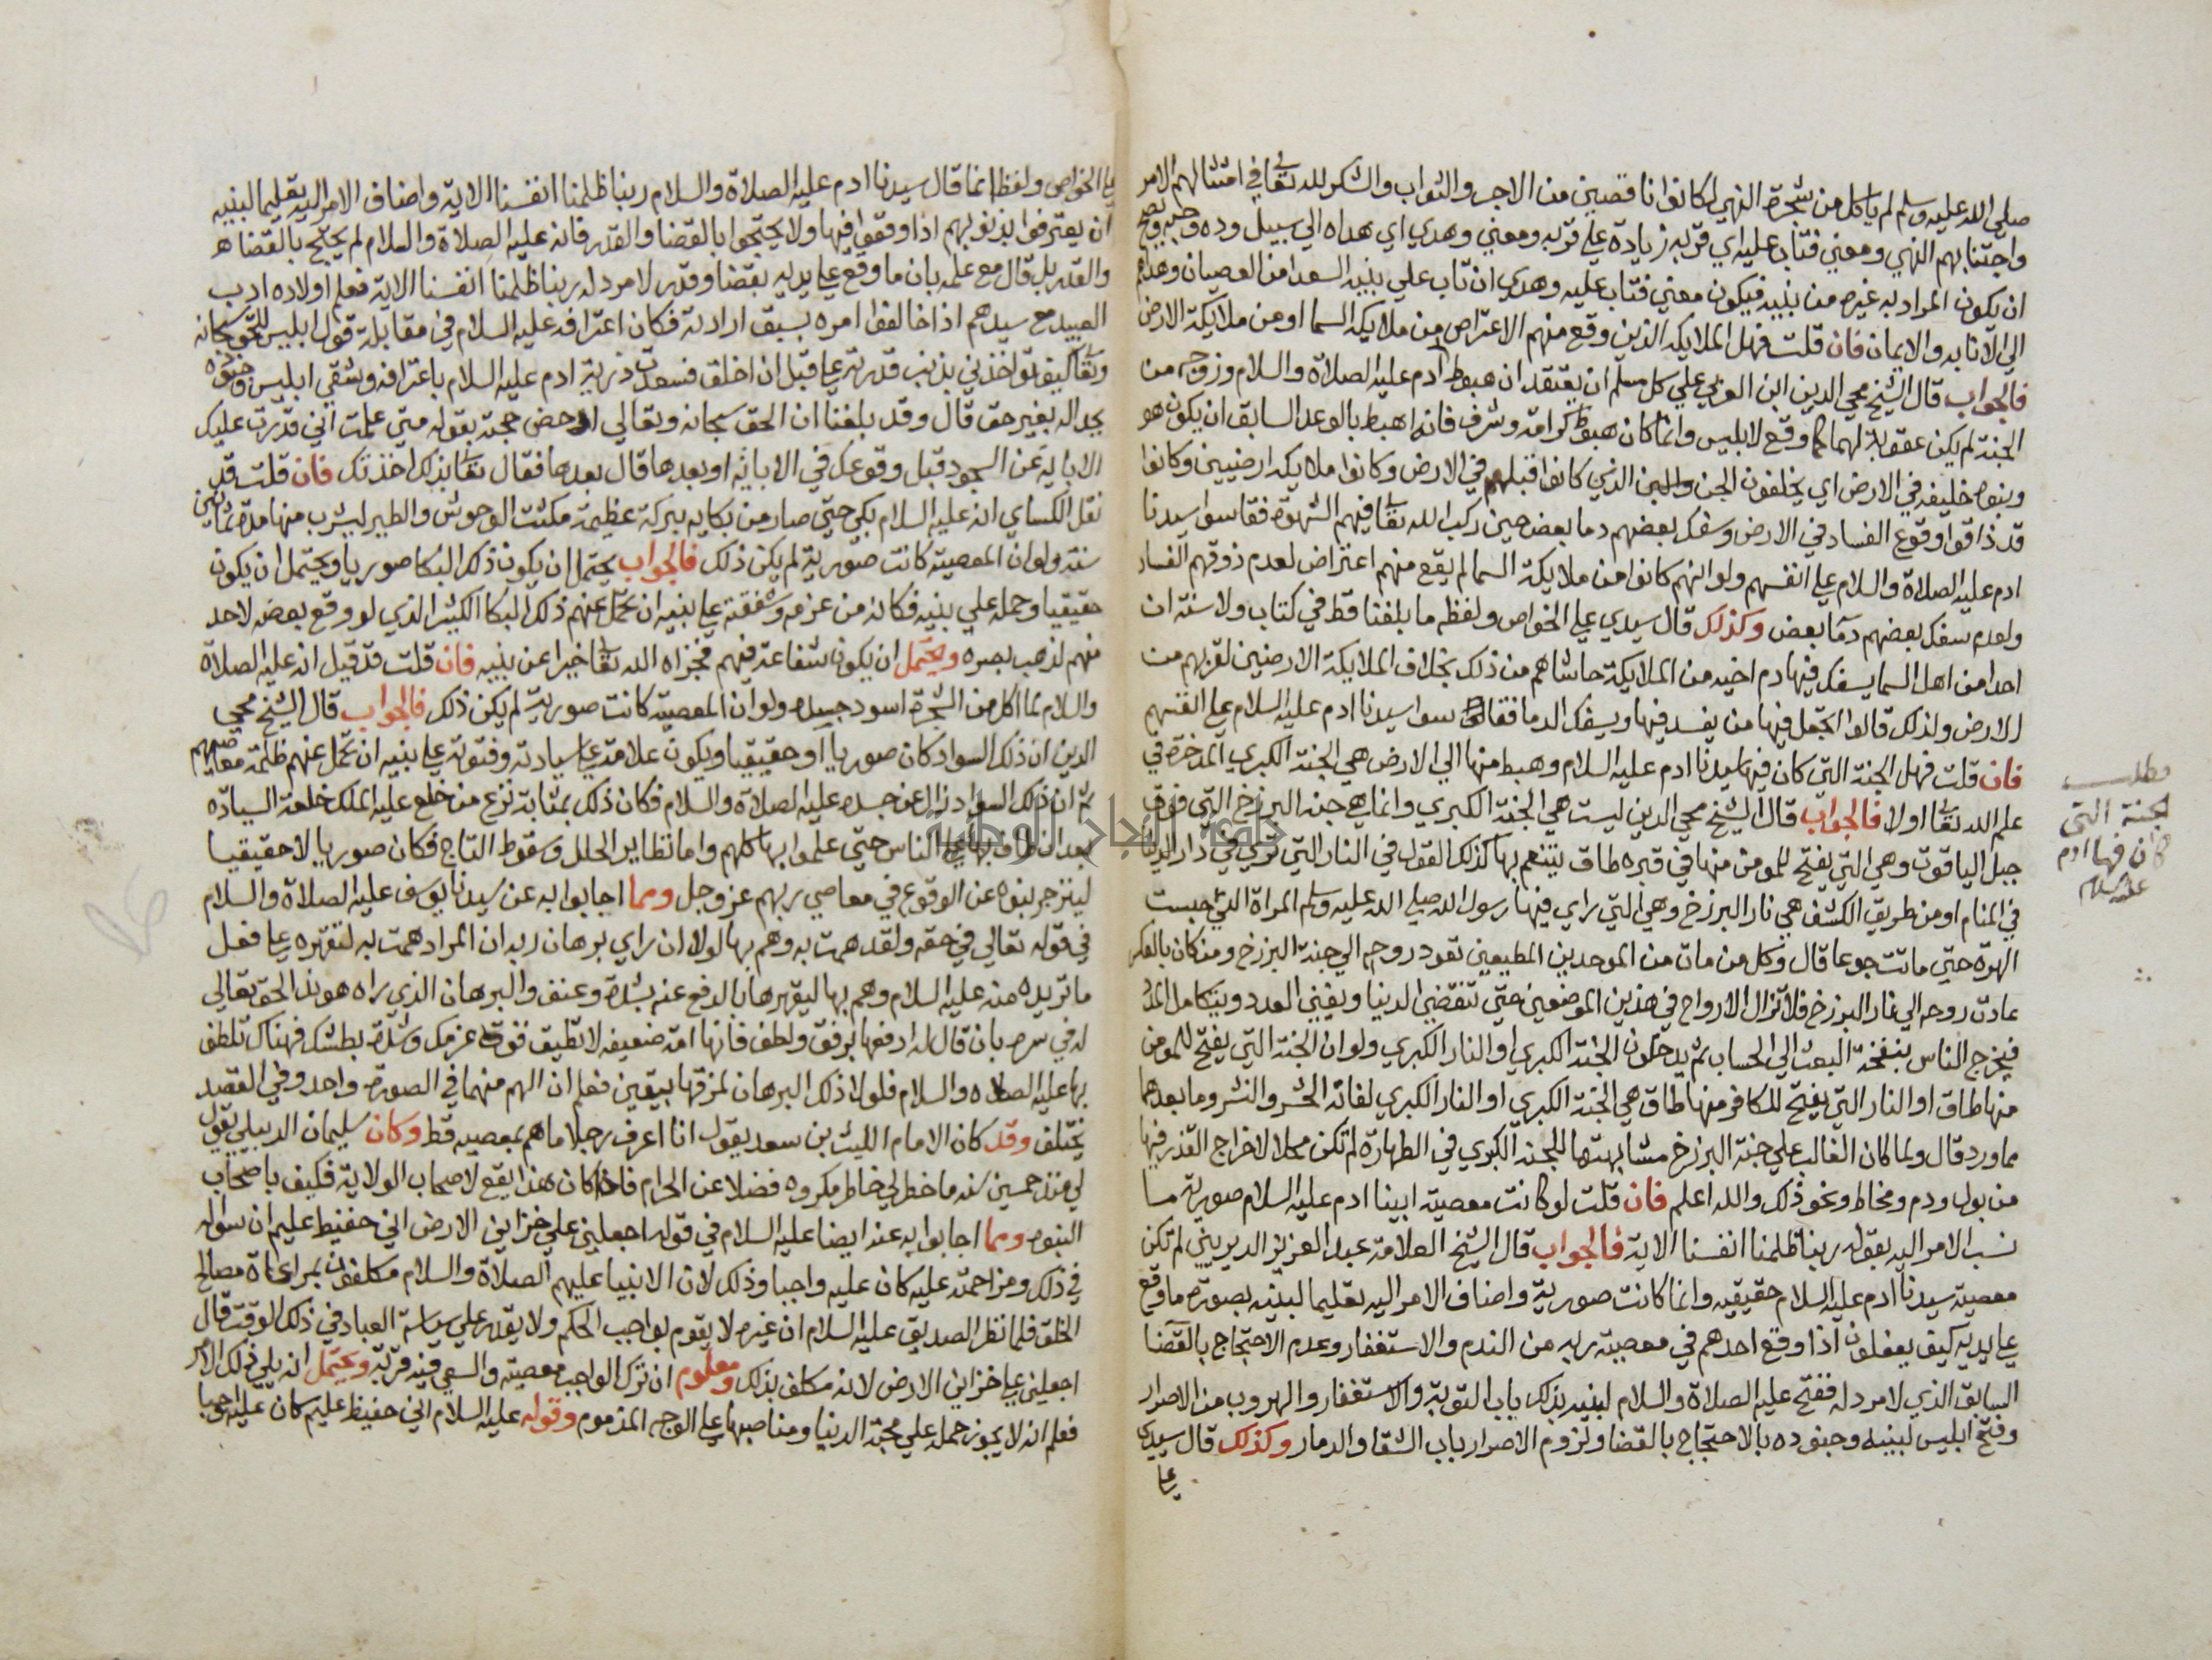 صلي الله عليه وسلم لم ياكل من شجرة النهي لكانوا ناقصين من الاجر والثواب والشكر لله تعا في امتثالهم الامر
واجتنابهم النهي ومعني فتاب عليه اي قربه زيادة علي قربه ومعني وهدي اي هداه الي سبيل وده وحبه ويصح
ان يكون المراد به غيره من بنيه فيكون معني فتاب عليه وهدي ان تاب علي بنيه السعدا من العصيان وهداهم
الي الانابه والايمان فان قلت فهل الملايكه الذين وقع منهم الاعتراض من ملايكة السما او من ملايكة الارض
فالجواب قال الشيخ محيي الدين ابن العربي علي كل مسلم ان يعتقد ان هبوط آدم عليه الصلاة والسلام وزوجه من
الجنة لم يكن عقوبة لهما كما وقع لابليس وانما كان هبوط كرامة وشرف فانه اهبط بالوعد السابق ان يكون هو
وبنوه خليفه في الارض اي يخلفون الجن والبن الذي كانوا قبلهم في الارض وكانوا ملايكه ارضيين وكانوا
قد ذاقوا وقوع الفساد في الارض وسفك بعضهم دما بعض حين ركب الله تعا فيهم الشهوة فقاسوا سيدنا
ادم عليه الصلاة والسلام علي انفسهم ولو انهم كانوا من ملايكة السما لم يقع منهم اعتراض لعدم ذوقهم الفساد
ولعدم سفك بعضهم دمآ بعض وكذلك قال سيدي علي الخواص ولفظه ما بلغنا قط في كتاب ولا سنة ان
احدا من اهل السما يسفك فيها دم اخيه من الملايكة حاشاهم من ذلك بخلاف الملايكة الارضيين لقربهم من
الارض ولذلك قالوا اتجعل فيها من يفسد فيها ويسفك الدما فقاسوا سيدنا ادم عليه السلام علي انفسهم
فان قلت فهل الجنة التي كان فيها سيدنا ادم عليه السلام وهبط منها الي الارض هي الجنة الكبري المدخرة في
علم الله تعا اولا فالجواب قال الشيخ محيي الدين ليست هي الجنة الكبري وانما هي جنة البرزخ التي فوق
جبل الياقوت وهي التي يفتح للمومن منها في قبره طاق يتنعم بها كذلك القول في النار التي تري في دار الدنيا
في المنام او من طريق الكشف هي نار البرزخ وهي التي راي فيها رسول الله صلي الله عليه وسلم المراة التي حبست
الهرة حتي ماتت جوعا قال وكل من مات من الموحدين المطيعين تعود روحه الي جنة البرزخ ومن كان بالعكس
عادت روحه الي نار البرزخ فلا تزال الارواح في هذين الموضعين حتي تنقضي الدنيا ويفني العدد ويتكامل المدد
فيخرج الناس بنفخة البعث الي الحساب ثم يدخلون الجنة الكبري او النار الكبري ولو ان الجنة التي يفتح للمومن
منها طاق او النار التي يفتح للكافر منها طاق هي الجنة الكبري او النار الكبري لفاته الحشر والنشر وما بعدهما
مما ورد قال ولما كان الغالب علي جنة البرزخ مشابهتها للجنة الكبري في الطهارة لم تكن محلا لاخراج القذر فيها
من بول ودم ومخاط ونحو ذلك والله اعلم فان قلت لو كانت معصية ابينا ادم عليه السلام صورية ما
نسب الامر اليه بقوله ربنا ظلمنا انفسنا الاية فالجواب قال الشيخ العلامة عبد العزيز الديريني لم تكن
معصية سيدنا ادم عليه السلام حقيقيه وانما كانت صورية واضاف الامر اليه تعليما لبنيه بصورة ما وقع
علي يديه كيف يفعلون اذا وقع احدهم في معصية ربه من الندم والاستغفار وعدم الاحتجاج بالقضا
السابق الذي لا مرد له ففتح عليه الصلاة والسلام لبنيه بذلك باب التوبة والاستغفار والهروب من الاصرار
وفتح ابليس لبنيه وجنوده بالاحتجاج بالقضا ولزوم الاصرار باب الشقا والدمار وكذلك قال سيدي
علي
مطلب
الجنة التي
كان فيها ادم
عليه السلام
علي الخواص ولفظه انما قال سيدنا ادم عليه الصلاة والسلام ربنا ظلمنا انفسنا الاية واضاف الامر اليه تعليما لبنيه
ان يعترفوا بذنوبهم اذا وقعوا فيها ولا يحتجوا بالقضا والقدر فانه عليه الصلاة والسلام لم يحتج بالقضا
والقدر بل قال مع علمه بان ما وقع علي يديه بقضا وقدر لا مرد له ربنا ظلمنا انفسنا الاية فعلم اولاده ادب
العبيد مع سيدهم اذا خالفوا امره بسبق ارادته فكان اعترافه عليه السلام في مقابلة قول ابليس للحق سبحانه
وتعا كيف تواخذني بذنب قدرته علي قبل ان اخلق فسعدت ذرية ادم عليه السلام باعترافه وشقي ابليس وجنوده
بجداله بغير حق قال وقد بلغنا ان الحق سبحانه وتعالي ادحض حجته بقوله متي علمت اني قدرت عليك
الاباية عن السجود قبل وقوعك في الاباية او بعدها قال بعدها فقال تعا بذلك اخذتك فان قلت قد
نقل الكساي انه عليه السلام بكي حتي صار من بكايه بركة عظيمة مكثت الوحوش والطير ليشرب منها مدة ثمانين
سنة ولو ان المعصية كانت صورية لم يكن ذلك فالجواب يحتمل ان يكون ذلك البكا صوريا ويحتمل ان يكون
حقيقيا وحمله علي بنيه فكانه من عزمه وشفقته علي بنيه ان تحمل عنهم ذلك البكا الكثير الذي لو وقع بعضه لاحد
منهم لذهب بصره ويحتمل ان يكون شفاعة فيهم فجزاه الله تعا خيرا عن بنيه فان قلت قد قيل انه عليه الصلاة
والسلام لما اكل من الشجرة اسود جسده ولو ان المعصية كانت صورية لم يكن ذلك فالجواب قال الشيخ محيي
الدين ان ذلك السواد كان صوريا او حقيقيا ويكون علامة علي سيادته وفتوته علي بنيه ان تحمل عنهم ظلمة معاصيهم
ثم ان ذلك السواد زال عن جسده عليه الصلاة والسلام فكان ذلك بمثابة نزع من خلع عليه الملك خلعة السيادة
بعد ان طاف بها علي الناس حتي علموا بها كلهم واما تطاير الحلل وسقوط التاج فكان صوريا لا حقيقيا
لينزجر بنوه عن الوقوع في معاصي ربهم عز وجل ومما اجابوا به عن سيدنا يوسف عليه الصلاة والسلام
في قوله تعالي في حقه ولقد همت به وهم بها لولا ان راي برهان ربه ان المراد همت به لتقهره علي فعل
ما تريده منه عليه السلام وهم بها ليقهرها بالدفع عنه بشدة وعنف والبرهان الذي راه هو ندا الحق تعالي
له في سره بان قال له ادفعها برفق ولطف فانها امة ضعيفه لا تطيق قوة عزمك وشدة بطشك فهناك تلطف
بها عليه الصلاه والسلام فلولا ذلك البرهان لمزقها بيقين فعلم ان الهم منهما في الصورة واحد وفي القصد
يختلف وقد كان الامام الليث بن سعد يقول انا اعرف رجلا ما هم بمعصيه قط وكان سليمان الدبيلي يقول
لي منذ خمسين سنه ما خطر لي خاطر مكروه فضلا عن الحرام فاذا كان هذا يقع لاصحاب الولاية فكيف باصحاب
النبوه ومما اجابوا به عنه ايضا عليه السلام في قوله اجعلني علي خزاين الارض اني حفيظ عليم ان سواله
في ذلك ومزاحمته عليه كان عليه واجبا وذلك لان الانبيا عليهم الصلاة والسلام مكلفون بمراعاة مصالح
الخلق فلما نظر الصديق عليه السلام ان غيره لا يقوم بواجب الحكم ولا يقدر علي سياسة العباد في ذلك الوقت قال
اجعلني علي خزاين الارض لانه مكلف بذلك ومعلوم ان ترك الواجب معصية والسعي فيه قربة ويحتمل انه يلي ذلك الامر
فعلم انه لا يجوز حمله علي محبة الدنيا ومناصبها علي الوجه المذموم وقوله عليه السلام اني حفيظ عليم كان عليه واجبا
جامعة النجاح الوطنية